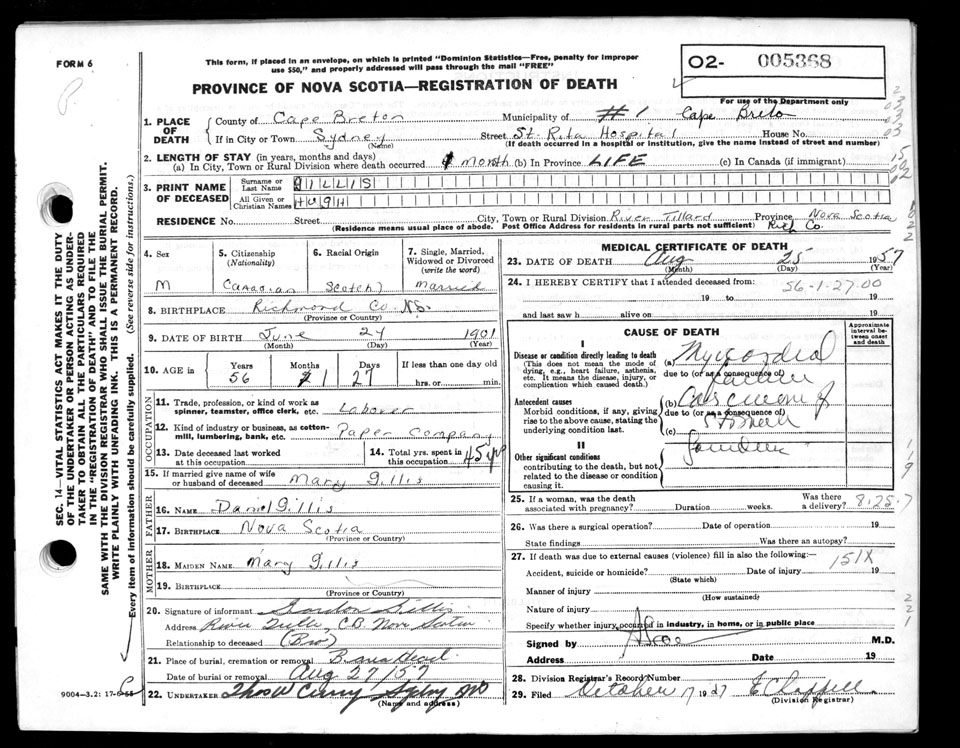 FORM 6
This form, if placed in an envelope, on which is printed "Dominion Statistics—Free, penalty for improper
use $50," and properly addressed will pass through the mail "FREE"
PROVINCE OF NOVA SCOTIA—REGISTRATION OF DEATH
O2- 005368
For use of the Department only
1. PLACE OF DEATH
County of Cape Breton Municipality of # 1 Cape Breton
If in City or Town Sydney (Name) Street St. Rita Hospital House No.
(If death occurred in a hospital or institution, give the name instead of street and number)
2. LENGTH OF STAY (in years, months and days)
(a) In City, Town or Rural Division where death occurred 1 month (b) In Province LIFE (c) In Canada (if immigrant)
3. PRINT NAME OF DECEASED
Surname or Last Name GILLIS
All Given or Christian Names HUGH
RESIDENCE No. Street City, Town or Rural Division River Tillard Province Nova Scotia
(Residence means usual place of abode. Post Office Address for residents in rural parts not sufficient) Rich Co.
4. Sex M
5. Citizenship (Nationality) Canadian
6. Racial Origin Scotch
7. Single, Married, Widowed or Divorced (write the word) Married
8. BIRTHPLACE Richmond Co. N.S.
(Province or Country)
9. DATE OF BIRTH June 24 1901
(Month) (Day) (Year)
10. AGE in Years 56 Months 1 Days 27 If less than one day old hrs. or min.
OCCUPATION
11. Trade, profession, or kind of work as
spinner, teamster, office clerk, etc. Laborer
12. Kind of industry or business, as cotton-
mill, lumbering, bank, etc. Paper Company
13. Date deceased last worked at this occupation
14. Total yrs. spent in this occupation 45 yrs
15. If married give name of wife
or husband of deceased Mary Gillis
FATHER
16. NAME Daniel Gillis
17. BIRTHPLACE Nova Scotia
(Province or Country)
MOTHER
18. MAIDEN NAME Mary Gillis
19. BIRTHPLACE
(Province or Country)
20. Signature of informant Gordon Gillis
Address River C.B. Nova Scotia
Relationship to deceased (Bro)
21. Place of burial, cremation or removal
Date of burial or removal Aug 27/57
22. UNDERTAKER Thos W Curry Sydney NS
(Name and address)
MEDICAL CERTIFICATE OF DEATH
23. DATE OF DEATH Aug 25 1957
(Month) (Day) (Year)
24. I HEREBY CERTIFY that I attended deceased from: 56-1-27.00
19 to 19
and last saw h alive on 19
CAUSE OF DEATH
Approximate interval between onset and death
I
Disease or condition directly leading to death
(This does not mean the mode of
dying, e.g., heart failure, asthenia,
etc. It means the disease, injury, or
complication which caused death.)
(a) Myocardial
due to (or as a consequence of)
failure
Antecedent causes
Morbid conditions, if any, giving
rise to the above cause, stating the
underlying condition last.
(b) Carcinoma of
due to (or as a consequence of)
stomach
(c)
II
Other significant conditions
contributing to the death, but not
related to the disease or condition
causing it.
Jaundice
25. If a woman, was the death
associated with pregnancy? Duration weeks. Was there a delivery? 8-25-7
26. Was there a surgical operation? Date of operation 19
State findings Was there an autopsy?
27. If death was due to external causes (violence) fill in also the following:—
Accident, suicide or homicide? Date of injury 19
151X
(State which)
Manner of injury
(How sustained)
Nature of injury
Specify whether injury occurred in industry, in home, or in public place
Signed by M.D.
Address Date 19
28. Division Registrar's Record Number
29. Filed October 7 1957 E Chappell
(Division Registrar)
SEC. 14—VITAL STATISTICS ACT MAKES IT THE DUTY
OF THE UNDERTAKER OR PERSON ACTING AS UNDER-
TAKER TO OBTAIN ALL THE PARTICULARS REQUIRED
IN THE "REGISTRATION OF DEATH" AND TO FILE THE
SAME WITH THE DIVISION REGISTRAR WHO SHALL ISSUE THE BURIAL PERMIT.
WRITE PLAINLY WITH UNFADING INK. THIS IS A PERMANENT RECORD.
Every item of information should be carefully supplied. (See reverse side for instructions.)